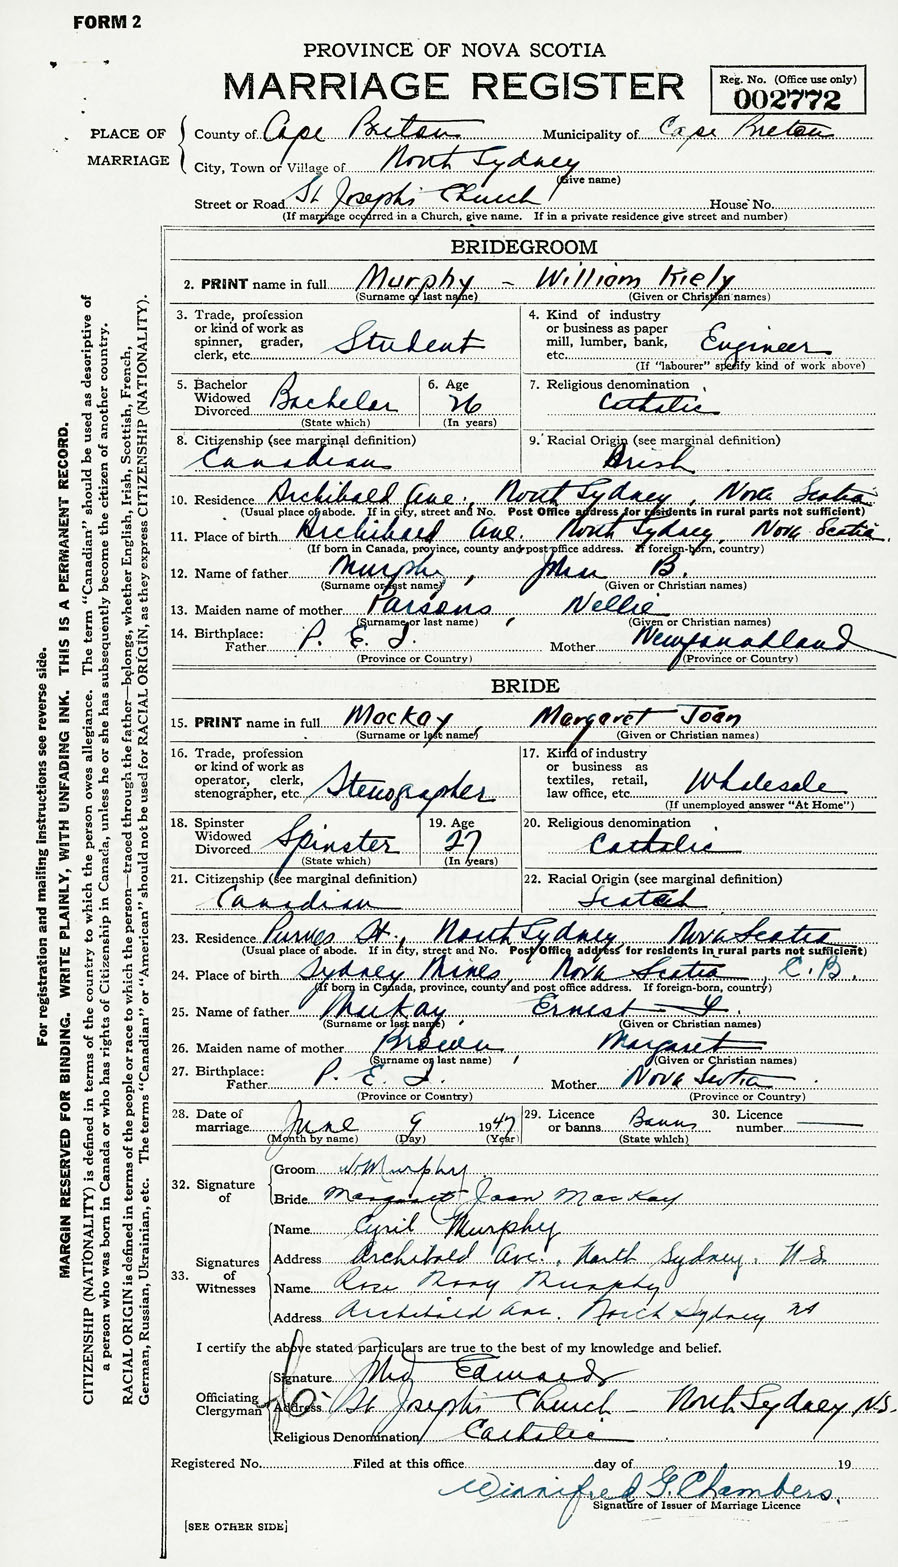 FORM 2
PROVINCE OF NOVA SCOTIA
MARRIAGE REGISTER
Reg. No. (Office use only)
002772
PLACE OF MARRIAGE
County of Cape Breton Municipality of Cape Breton
City, Town or Village of North Sydney
(Give name)
Street or Road St Joseph's Church House No.
(If marriage occurred in a Church, give name. If in a private residence give street and number)
BRIDEGROOM
2. PRINT name in full Murphy - William Kiely
(Surname or last name) (Given or Christian names)
3. Trade, profession or kind of work as spinner, grader, clerk, etc. Student
4. Kind of industry or business as paper mill, lumber, bank, etc. Engineer
(If "labourer" specify kind of work above)
5. Bachelor Widowed Divorced Bachelor
(State which)
6. Age 26
(In years)
7. Religious denomination Catholic
8. Citizenship (see marginal definition) Canadian
9. Racial Origin (see marginal definition) Irish
10. Residence Archibald Ave., North Sydney, Nova Scotia
(Usual place of abode. If in city, street and No. Post Office address for residents in rural parts not sufficient)
11. Place of birth Archibald Ave. North Sydney, Nova Scotia.
(If born in Canada, province, county and post office address. If foreign-born, country)
12. Name of father Murphy, John B.
(Surname or last name) (Given or Christian names)
13. Maiden name of mother Parsons, Nellie
(Surname or last name) (Given or Christian names)
14. Birthplace: Father P. E. I. Mother Newfoundland
(Province or Country) (Province or Country)
BRIDE
15. PRINT name in full MacKay, Margaret Joan
(Surname or last name) (Given or Christian names)
16. Trade, profession or kind of work as operator, clerk, stenographer, etc. Stenographer
17. Kind of industry or business as textiles, retail, law office, etc. Wholesale
(If unemployed answer "At Home")
18. Spinster Widowed Divorced Spinster
(State which)
19. Age 27
(In years)
20. Religious denomination Catholic
21. Citizenship (see marginal definition) Canadian
22. Racial Origin (see marginal definition) Scotch
23. Residence Purves St., North Sydney Nova Scotia
(Usual place of abode. If in city, street and No. Post Office address for residents in rural parts not sufficient)
24. Place of birth Sydney Mines, Nova Scotia, C. B.
(If born in Canada, province, county and post office address. If foreign-born, country)
25. Name of father MacKay, Ernest
(Surname or last name) (Given or Christian names)
26. Maiden name of mother Brown, Margaret
(Surname or last name) (Given or Christian names)
27. Birthplace: Father P. E. I. Mother Nova Scotia
(Province or Country) (Province or Country)
28. Date of marriage June 9 1947
(Month by name) (Day) (Year)
29. Licence or banns Banns
(State which)
30. Licence number
32. Signature of
Groom W. Murphy
Bride Margaret Joan MacKay
33. Signatures of Witnesses
Name Cyril Murphy
Address Archibald Ave., North Sydney, N.S.
Name Rose Mary Murphy
Address Archibald Ave. North Sydney NS
I certify the above stated particulars are true to the best of my knowledge and belief.
Officiating Clergyman
Signature Edwards
Address St Joseph's Church - North Sydney, N.S.
Religious Denomination Catholic
Registered No. Filed at this office day of 19
Winnifred G. Chambers.
Signature of Issuer of Marriage Licence
[SEE OTHER SIDE]
For registration and mailing instructions see reverse side.
MARGIN RESERVED FOR BINDING. WRITE PLAINLY, WITH UNFADING INK. THIS IS A PERMANENT RECORD.
CITIZENSHIP (NATIONALITY) is defined in terms of the country to which the person owes allegiance. The term "Canadian" should be used as descriptive of
a person who was born in Canada or who has rights of Citizenship in Canada, unless he or she has subsequently become the citizen of another country.
RACIAL ORIGIN is defined in terms of the people or race to which the person—traced through the father—belongs, whether English, Irish, Scottish, French,
German, Russian, Ukrainian, etc. The terms "Canadian" or "American" should not be used for RACIAL ORIGIN, as they express CITIZENSHIP (NATIONALITY).